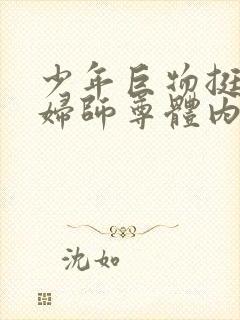 少年巨物挺
婦師尊體內
沈如